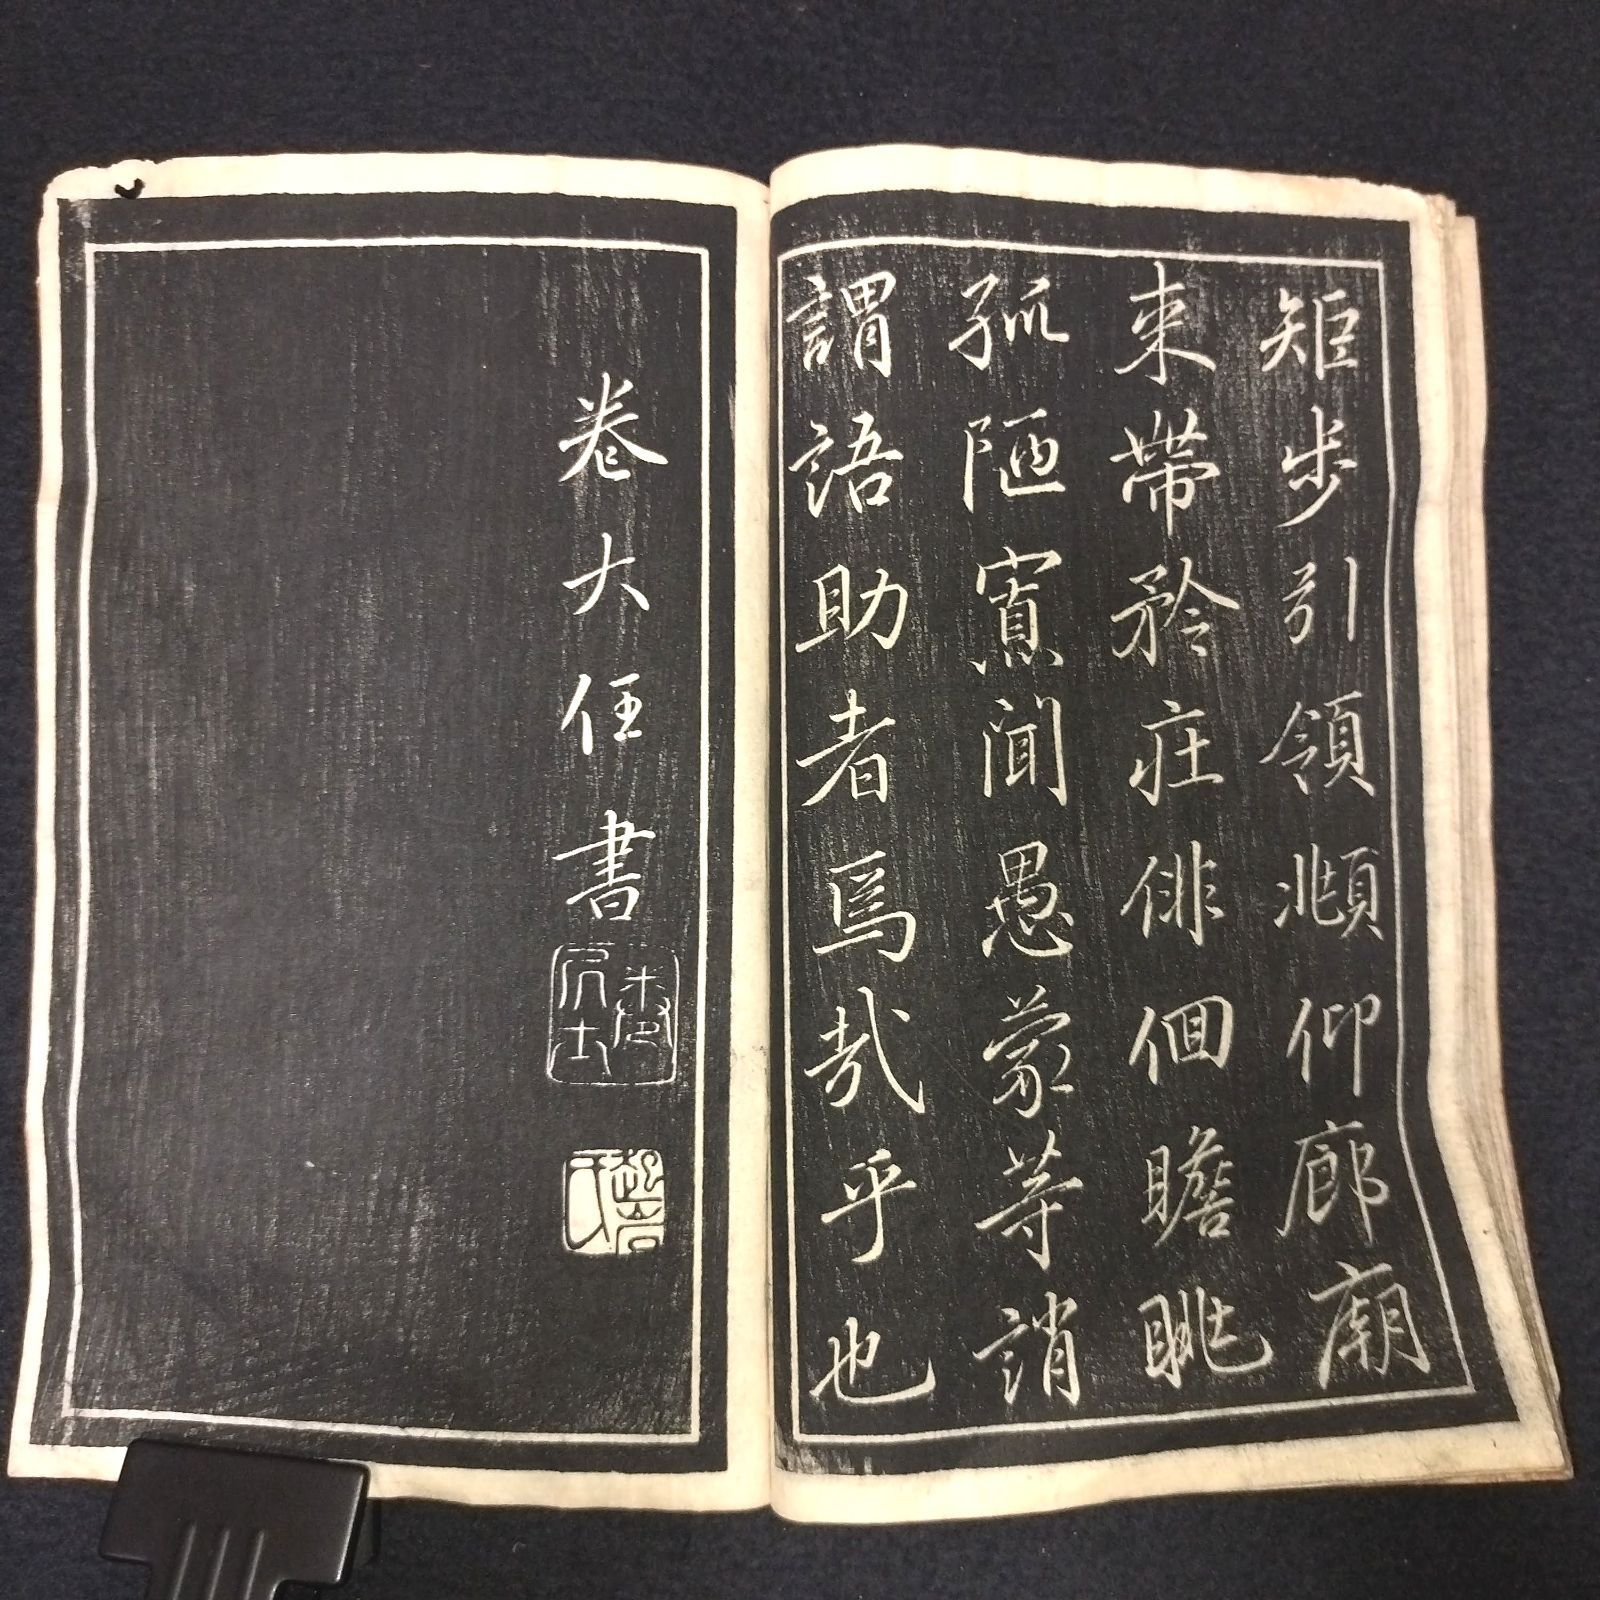 矩步引領頫仰廊廟
束帶矜莊俳佪瞻眺
孤陋寡聞愚蒙等誚
謂語助者焉哉乎也
卷大任書